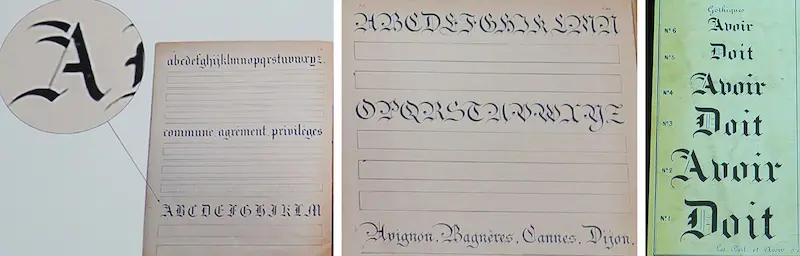 A
abcdefghijklmnopqrstuvwxyz.
commune, agrement, privileges
ABCDEFGHIKLM
ABCDEFGHIKLMN
OPQRSTUVWXYZ
Avignon, Bagnères, Cannes, Dijon.
Gothiques
N° 6 Avoir
N° 5 Doit
N° 4 Avoir
N° 3 Doit
N° 2 Avoir
N° 1 Doit
et Avoir